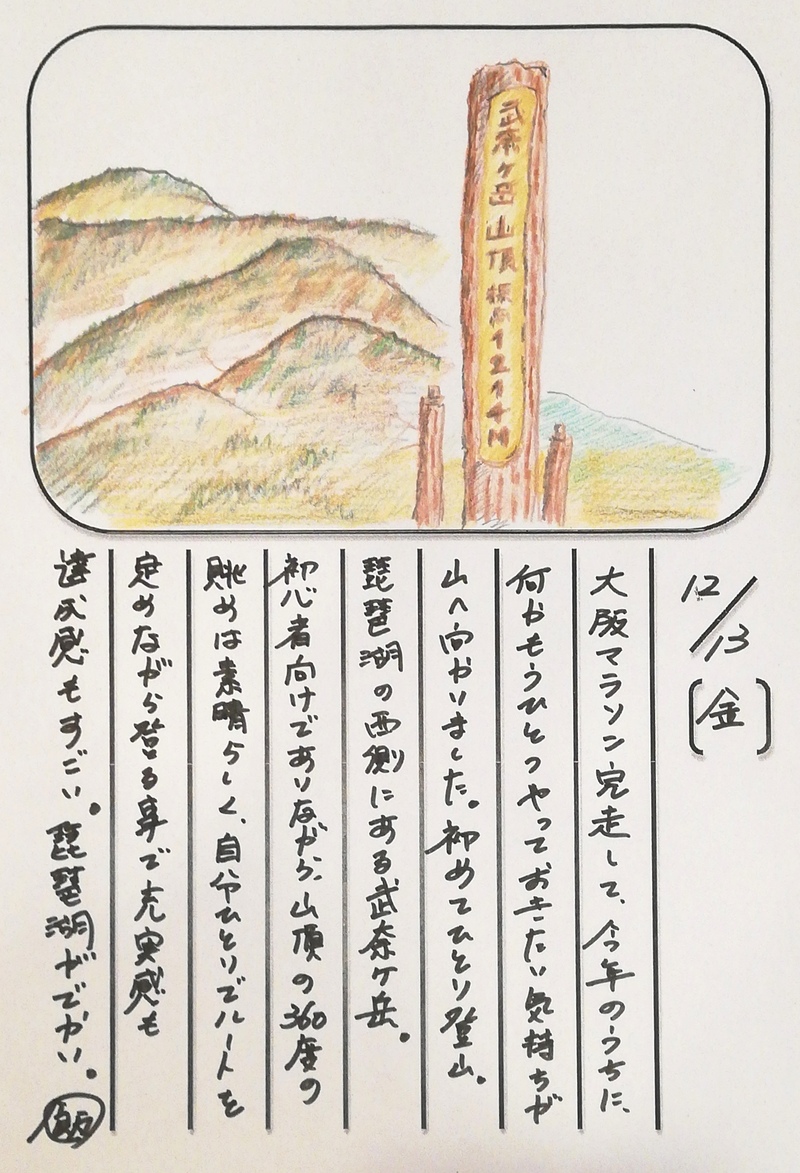 武奈ケ岳山頂標高1214M
12/13
(金)
大阪マラソン完走して、今年のうちに、
何かもうひとつやっておきたい気持ちが
山へ向かいました。初めてひとり登山。
琵琶湖の西側にある武奈ケ岳。
初心者向けでありながら、山頂の360度の
眺めは素晴らしく、自分ひとりでルートを
定めながら登る事で充実感も
達成感もすごい。琵琶湖がでかい。
飯